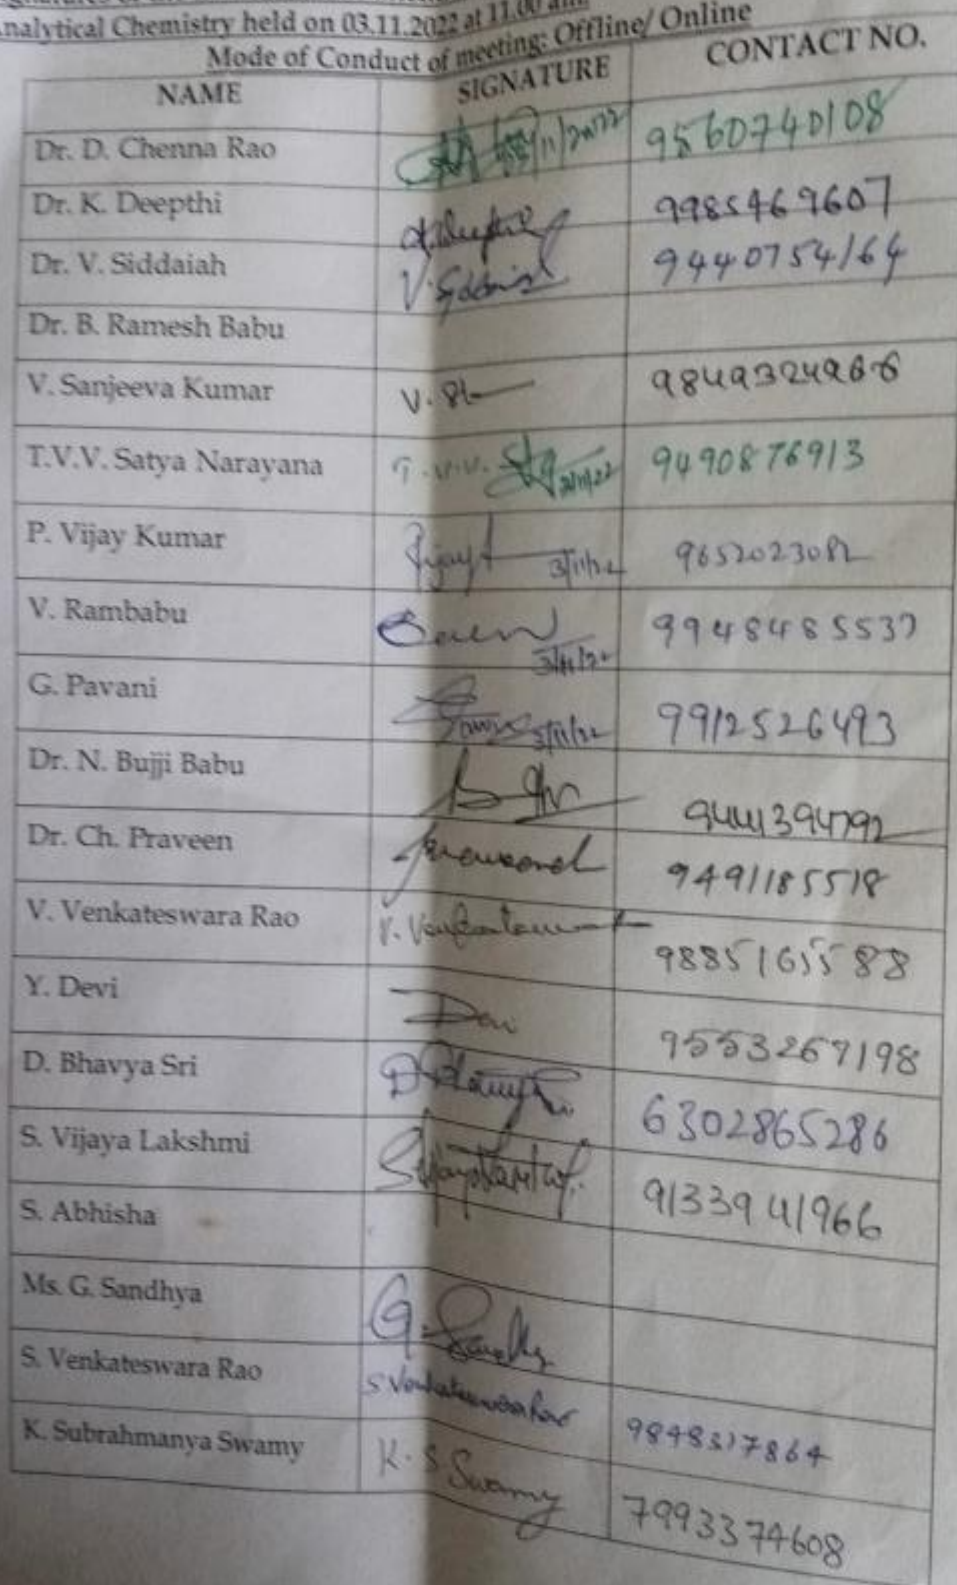 Analytical Chemistry held on 03.11.2022 at 11.00 am
Mode of Conduct of meeting: Offline/ Online
NAME SIGNATURE CONTACT NO.
Dr. D. Chenna Rao 03/11/2022 9560740108
Dr. K. Deepthi K.Deepthi 9985469607
Dr. V. Siddaiah V. Siddaiah 9440754164
Dr. B. Ramesh Babu
V. Sanjeeva Kumar V. 9849324966
T.V.V. Satya Narayana T.V.V. 9490876913
P. Vijay Kumar 3/11/22 9652023082
V. Rambabu 3/11/22 9948485537
G. Pavani 3/11/22 9912526493
Dr. N. Bujji Babu 9441394792
Dr. Ch. Praveen 9491185518
V. Venkateswara Rao V. Venkateswara 9885165588
Y. Devi Devi 9553267198
D. Bhavya Sri 6302865286
S. Vijaya Lakshmi S.Vijaya Lakshmi 9133941966
S. Abhisha
Ms. G. Sandhya G. Sandhya
S. Venkateswara Rao S Venkateswara Rao 9848317864
K. Subrahmanya Swamy K. S Swamy 7993374608